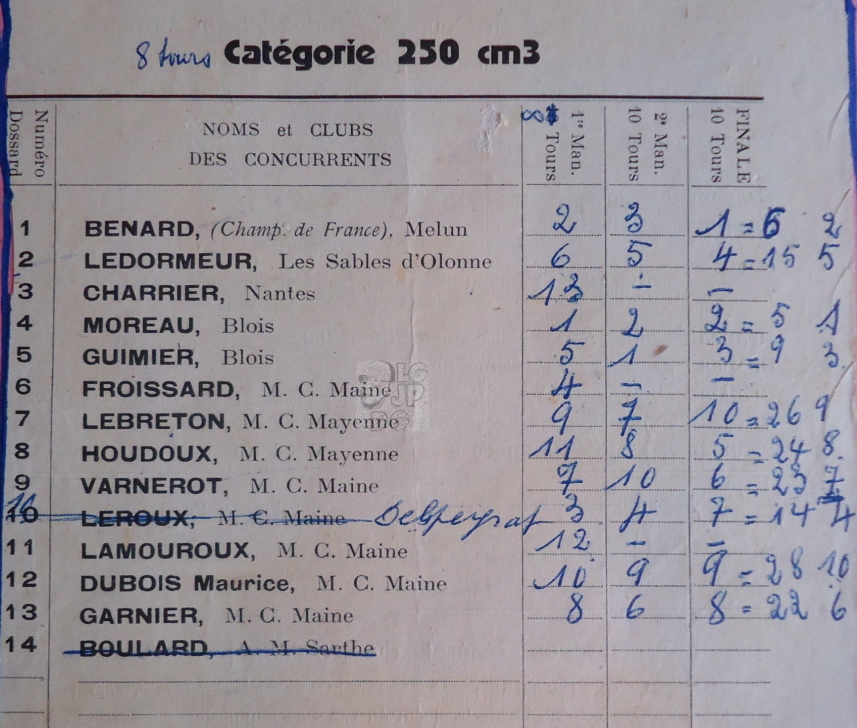 8 tours Catégorie 250 cm3
Numéro Dossard NOMS et CLUBS DES CONCURRENTS 8 1re Man. Tours 2e Man. 10 Tours FINALE 10 Tours
1 BENARD, (Champ. de France), Melun 2 3 1 = 6 2
2 LEDORMEUR, Les Sables d'Olonne 6 5 4 = 15 5
3 CHARRIER, Nantes 13 - -
4 MOREAU, Blois 1 2 2 = 5 1
5 GUIMIER, Blois 5 1 3 = 9 3
6 FROISSARD, M. C. Maine 4 - -
7 LEBRETON, M. C. Mayenne 9 7 10 = 26 9
8 HOUDOUX, M. C. Mayenne 11 8 5 = 24 8.
9 VARNEROT, M. C. Maine 7 10 6 = 23 7
10 LEROUX, M. C. Maine Delpeyrat 3 4 7 = 14 4
11 LAMOUROUX, M. C. Maine 12 - -
12 DUBOIS Maurice, M. C. Maine 10 9 9 = 28 10
13 GARNIER, M. C. Maine 8 6 8 = 22 6
14 BOULARD, A. M. Sarthe
LG
JP